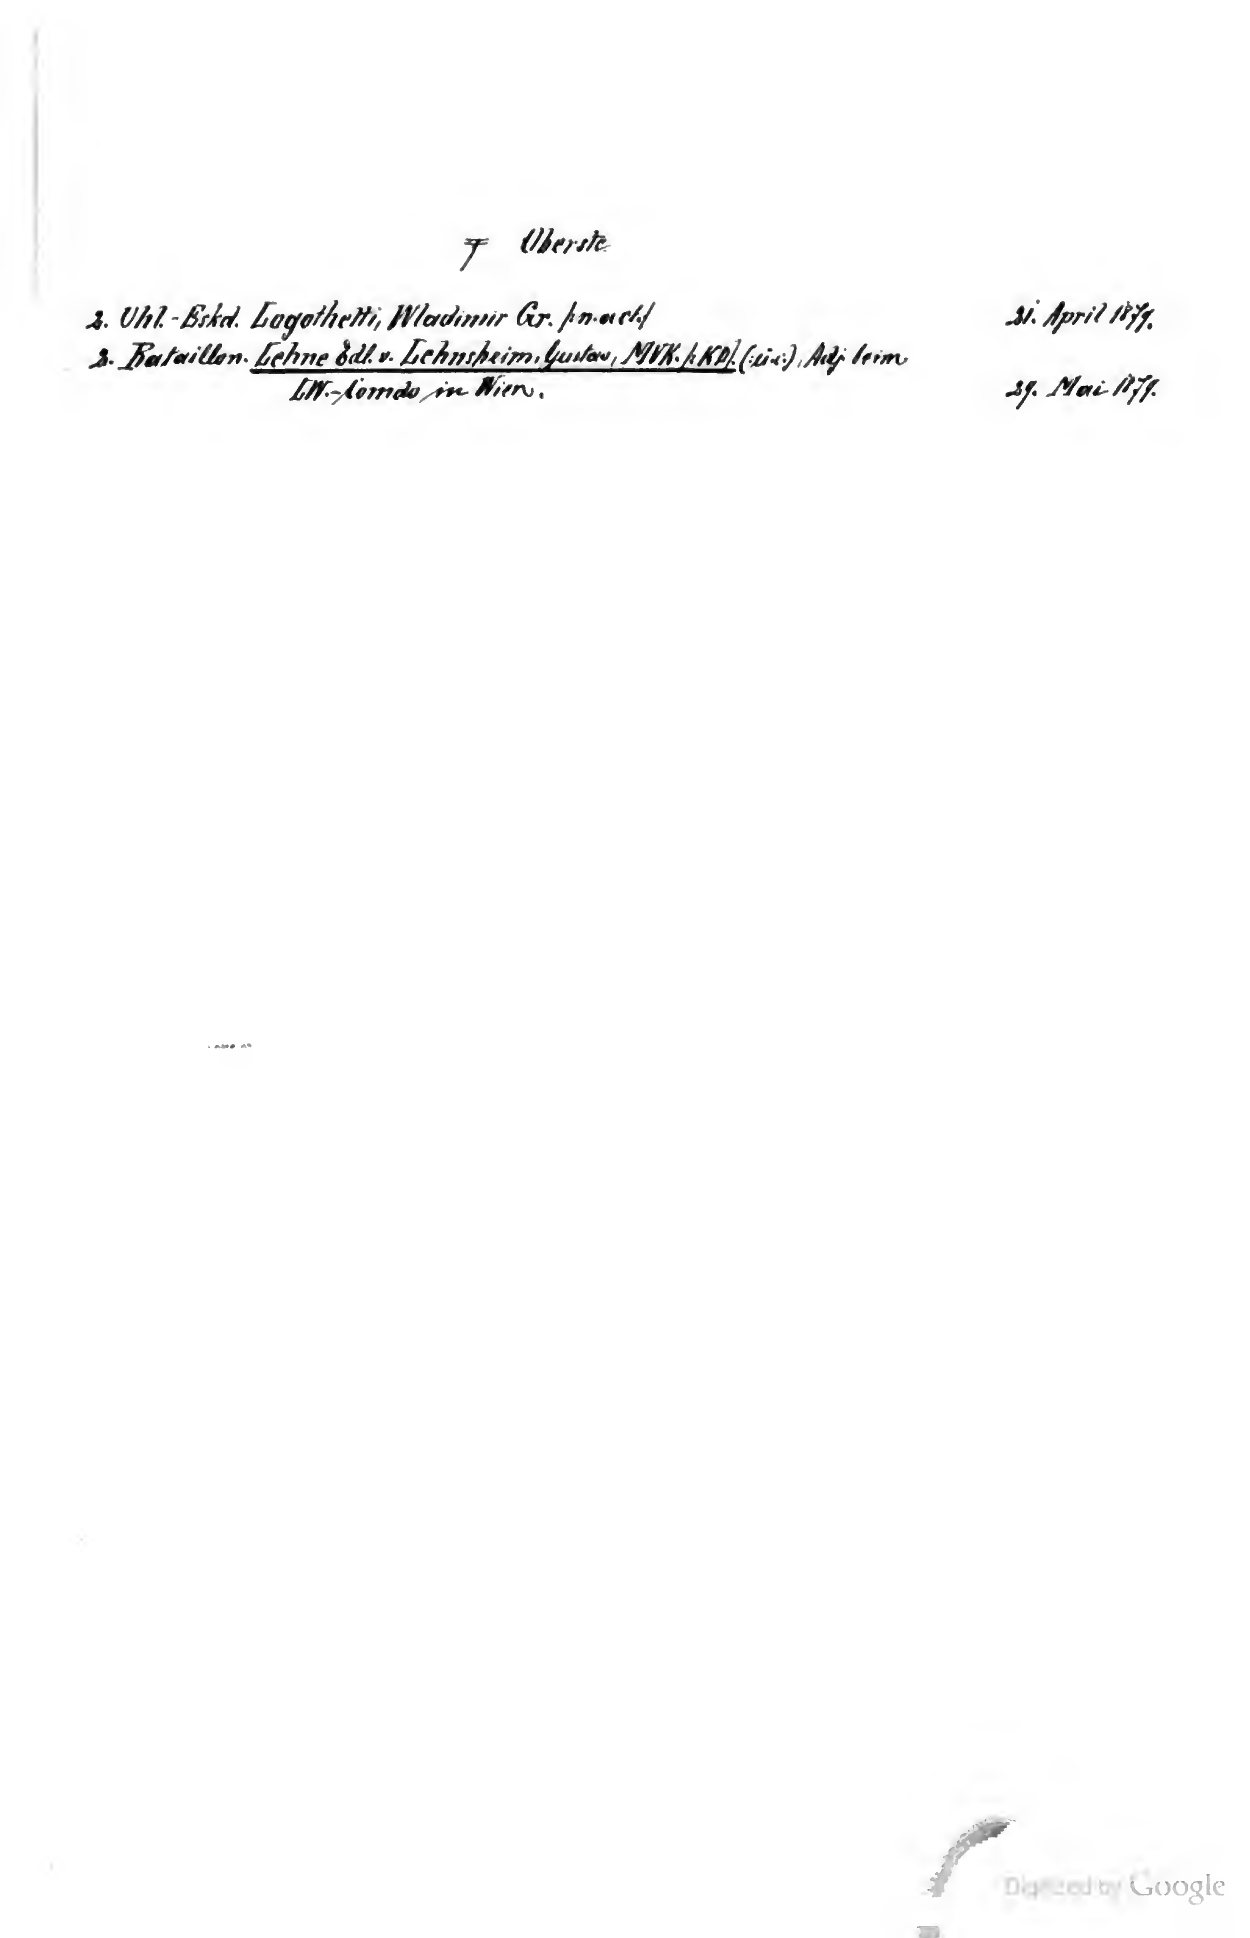 7 Oberste
2. Uhl.-Eskd. Logothetti, Wladimir Gr. [n. act.]
2. Bataillon. Lehne Edl. v. Lehnsheim, Gustav, MVK. [KD]. Adj. beim
LW.-Comdo in Wien.
21. April 1879.
29. Mai 1879.
Digitized by Google